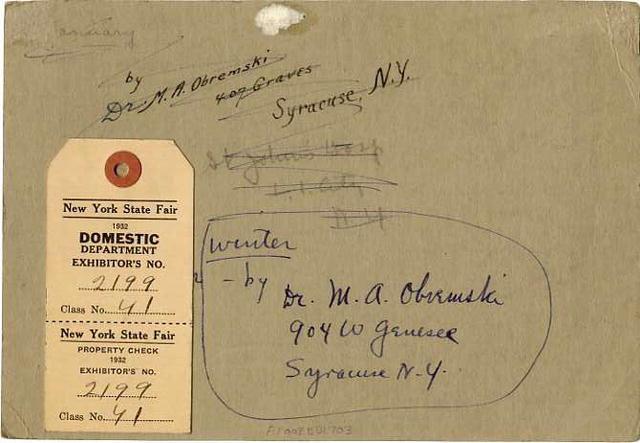 January
by
Dr. M. A. Obremski
409 Graves
Syracuse, N.Y.
St John's Hosp
L. I. City
N.Y
winter
- by
Dr. M. A. Obremski
904 W Genesee
Syracuse N.Y.
New York State Fair
1932
DOMESTIC
DEPARTMENT
EXHIBITOR'S NO.
2199
Class No. 41
New York State Fair
PROPERTY CHECK
1932
EXHIBITOR'S NO.
2199
Class No. 41